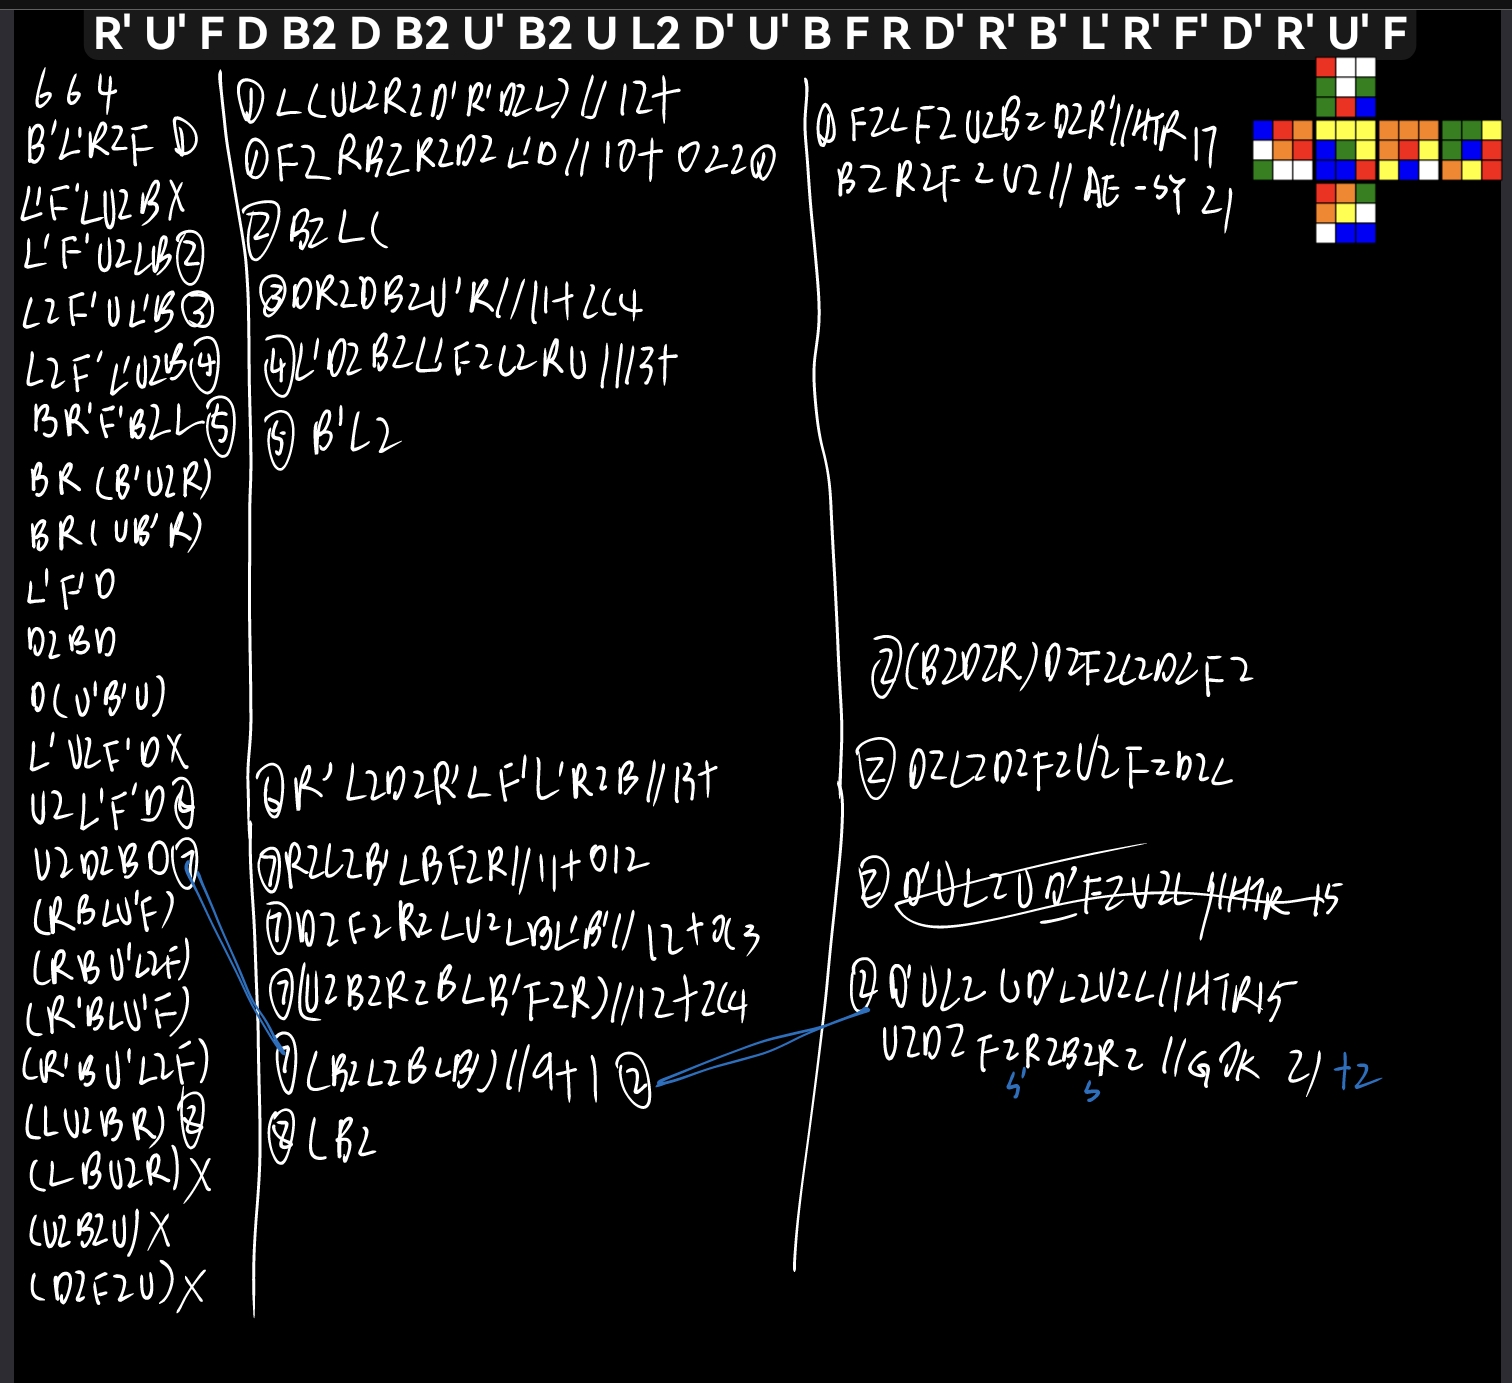 R' U' F D B2 D B2 U' B2 U L2 D' U' B F R D' R' B' L' R' F' D' R' U' F
6 6 4
B'L'R2F ①
L'F'LU2B X
L'F'U2LB②
L2F'UL'B③
L2F'L'U2B④
BR'F'B2L⑤
BR(B'U2R)
BR(UB'R)
L'F'D
D2BD
D(U'B'U)
L'U2F'D X
U2L'F'D⑥
U2D2BD⑦
(RBLU'F)
(RBU'L2F)
(R'BLU'F)
(R'BU'L2F)
(LU2BR)⑧
(LBU2R)X
(U2B2U)X
(D2F2U)X
① L(UL2R2D'R'D2L)//12+
① F2RB2R2D2L'D//10+ 022①
② B2L(
③ DR2DB2U'R//11+2C4
④ L'D2B2L'F2L2RU//13+
⑤ B'L2
⑥ R'L2D2R'LF'L'R2B//13+
⑦ R2L2B'LBF2R//11+012
⑦ D2F2R2LU2LBL'B'//12+
⑦ (U2B2R2BLB'F2R)//12+2C4
⑦ (B2L2BLB')//9+1②
⑧ (B2
① F2LF2U2B2D2R'//HTR17
B2R2F2U2//AE-SY 21
②(B2D2R)D2F2L2D2F2
② D2L2D2F2U2F2D2L
② D'UL2UD'F2U2L//HTR15
② D'UL2UD'L2U2L//HTR15
U2D2F2R2B2R2//GOK 21 +2
S' S